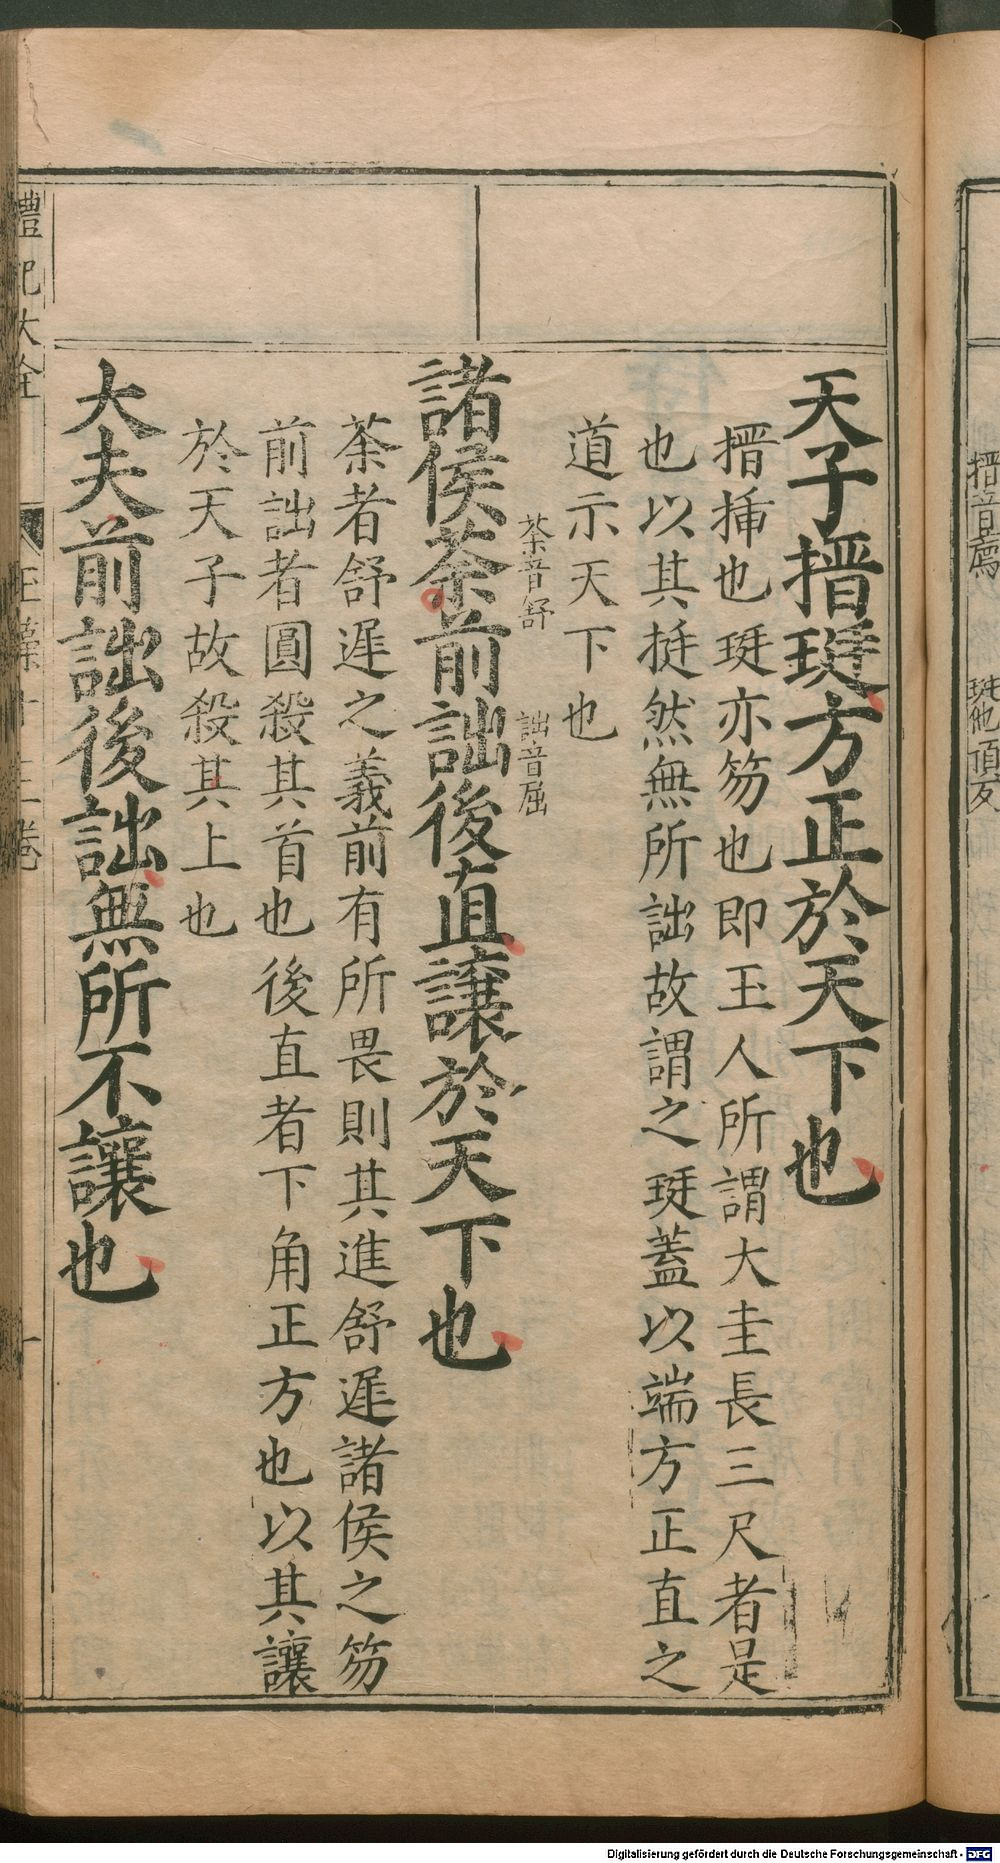 搢音薦
珽他頂反
天子搢珽方正於天下也
搢挿也珽亦笏也即玉人所謂大圭長三尺者是
也以其挺然無所詘故謂之珽蓋以端方正直之
道示天下也
荼音舒 詘音屈
諸侯荼前詘後直讓於天下也
荼者舒遲之義前有所畏則其進舒遲諸侯之笏
前詘者圓殺其首也後直者下角正方也以其讓
於天子故殺其上也
大夫前詘後詘無所不讓也
禮記大全 玉藻十三卷 十
Digitalisierung gefördert durch die Deutsche Forschungsgemeinschaft - DFG